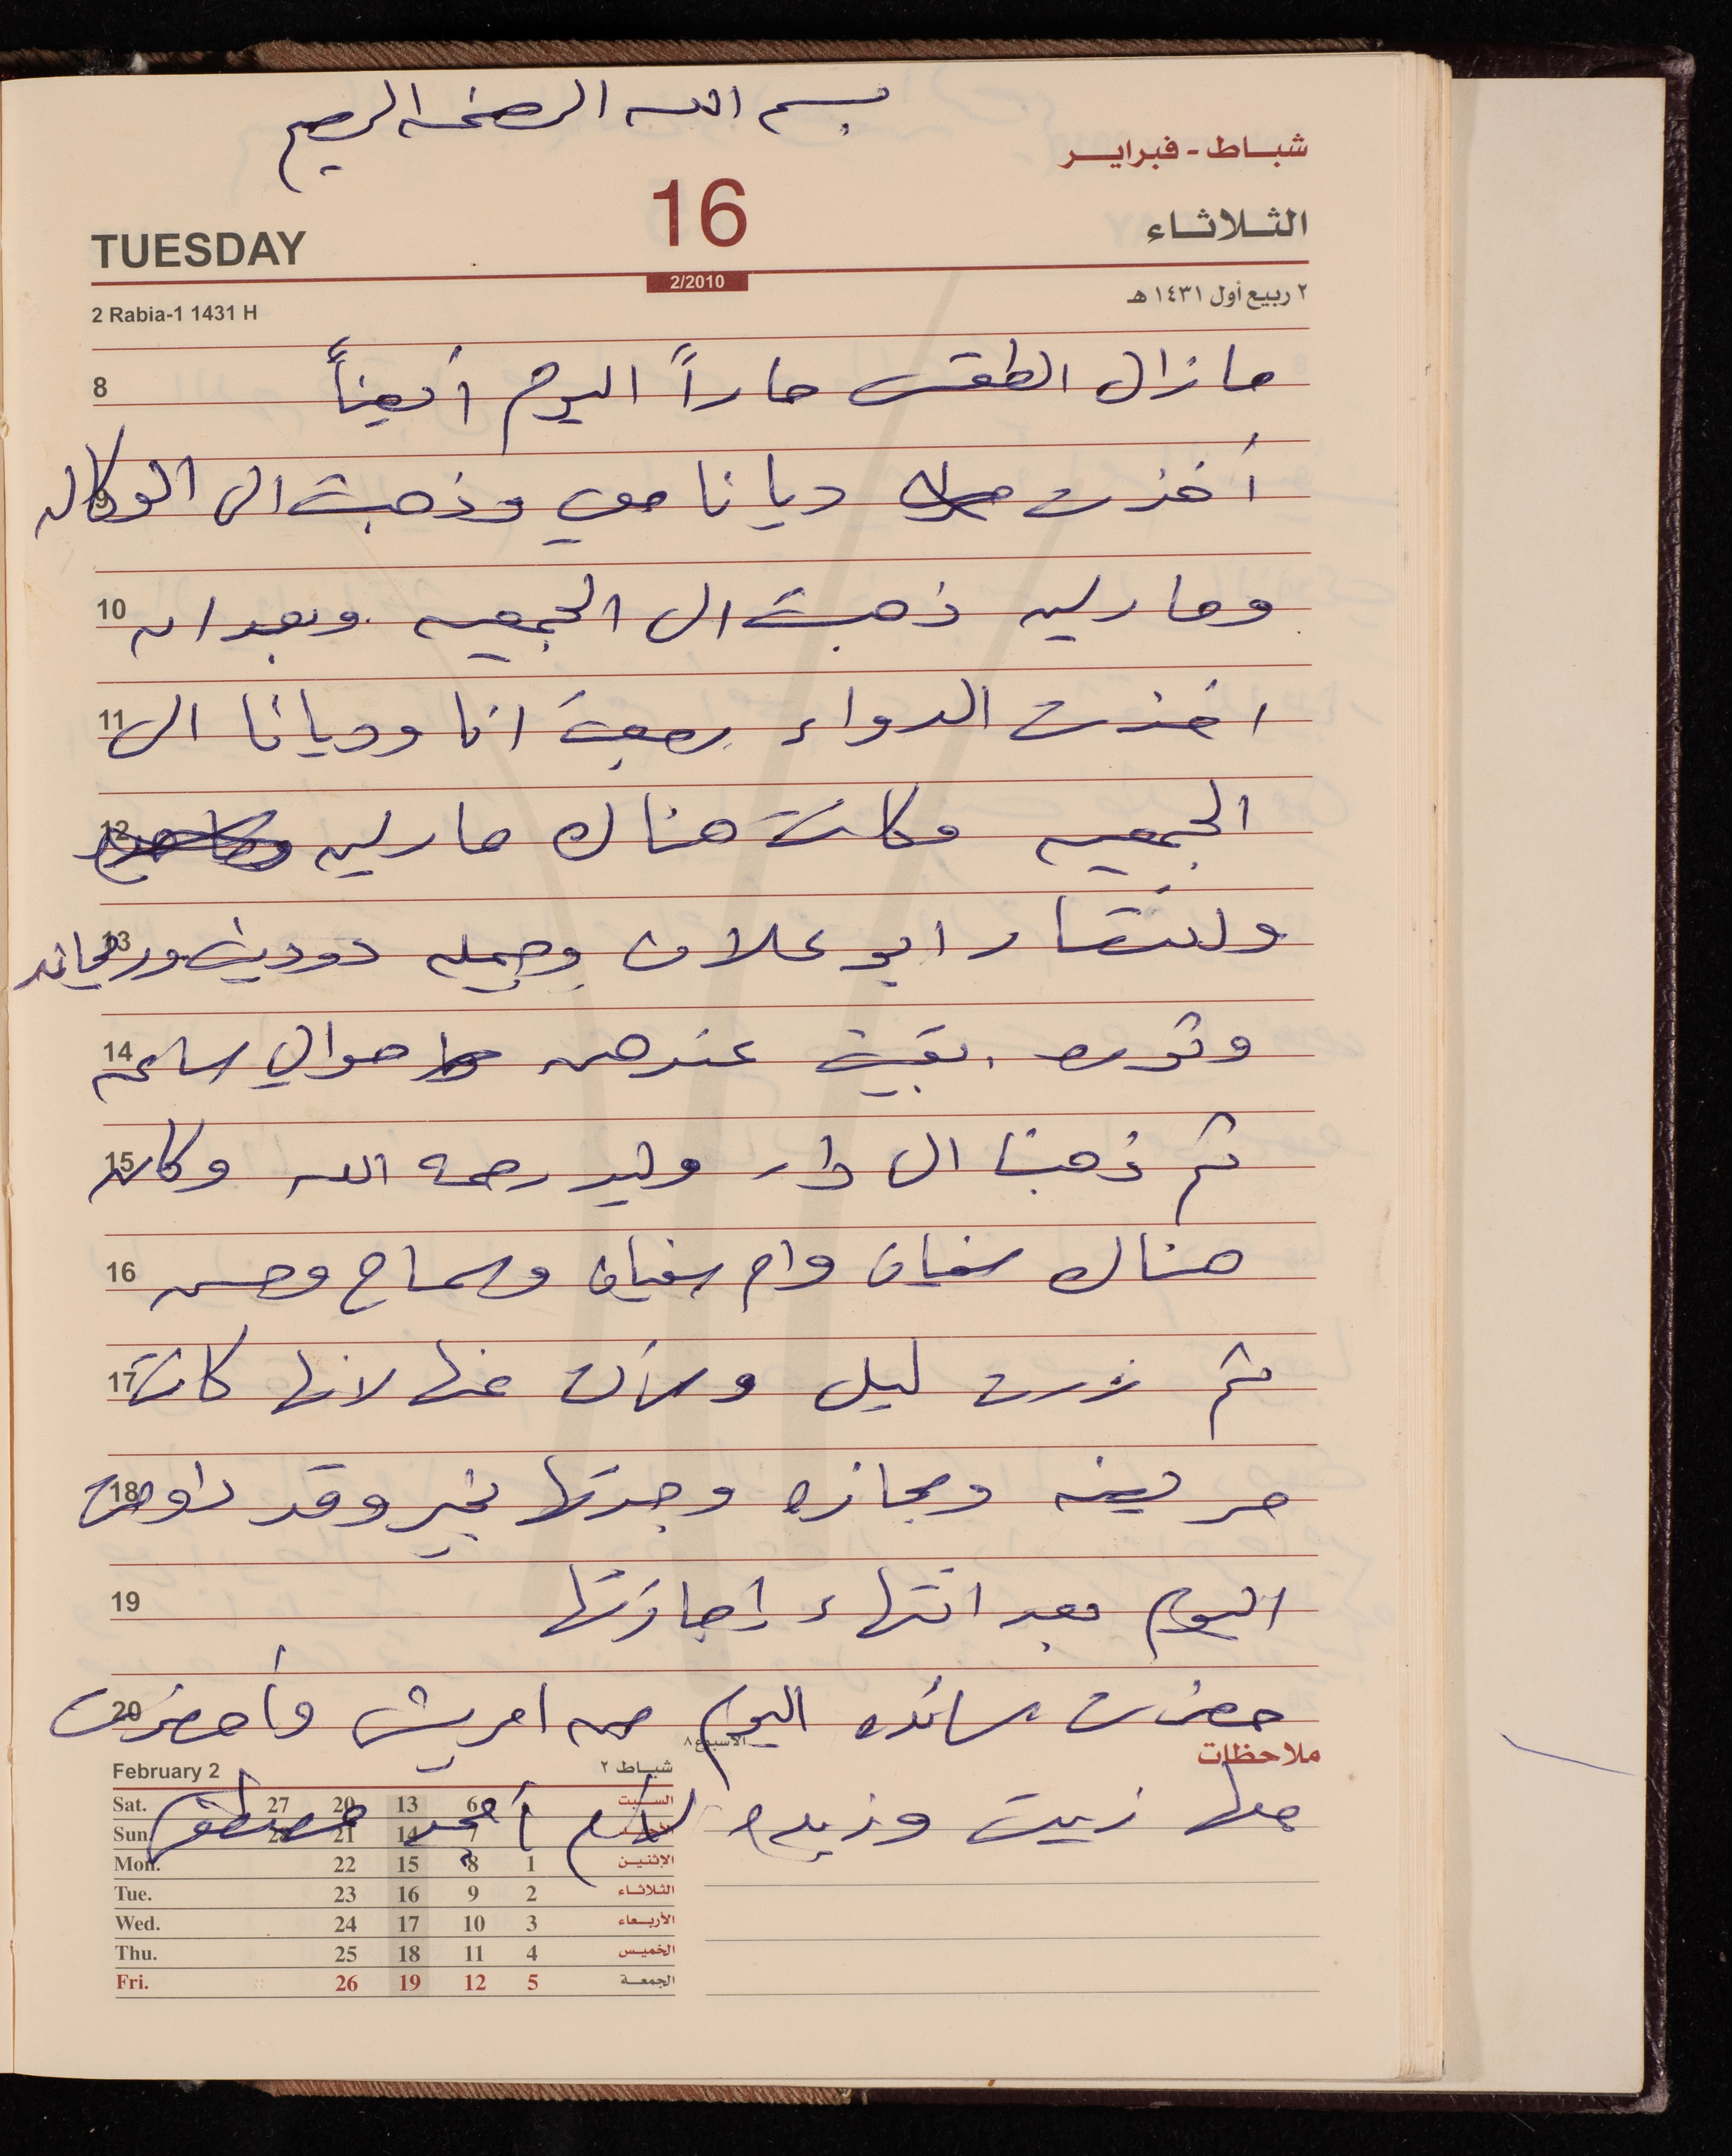 بسم الله الرحمن الرحيم
شباط - فبراير
16
TUESDAY
الثلاثاء
2/2010
2 Rabia-1 1431 H
٢ ربيع أول ١٤٣١ هـ
8 ما زال الطقس حاراً اليوم أيضاً
9 أخذت ديانا معي وذهبت الى الوكاله
10 ومارلين ذهبت الى الجمعيه وبعد ان
11 اخذت الدواء رجعت انا وديانا الى
12 الجمعيه وكانت هناك مارلين
13 وانتصار ابو علان وجميله دودين وريحانه
14 وثوره . بقيت عندهن حوالي ساعه
15 ثم ذهبنا الى دار وليد رحمه الله وكان
16 هناك سفيان وام سفيان وسماح وحسن
17 ثم زرت ليلى وسألت عنها لانها كانت
18 مريضه ومجازه وجدتها بخير وقد داومت
19 اليوم بعد انتهاء إجازتها
20 حضرت سائده اليوم من امريش وأحضرت
الأسبوع ٨
ملاحظات
معها زيت وزيتون لأم أمجد مصطفى
February 2 شباط ٢
Sat. 27 20 13 6 السبت
Sun. 28 21 14 7 الأحد
Mon. 22 15 8 1 الإثنين
Tue. 23 16 9 2 الثلاثاء
Wed. 24 17 10 3 الأربعاء
Thu. 25 18 11 4 الخميس
Fri. 26 19 12 5 الجمعة